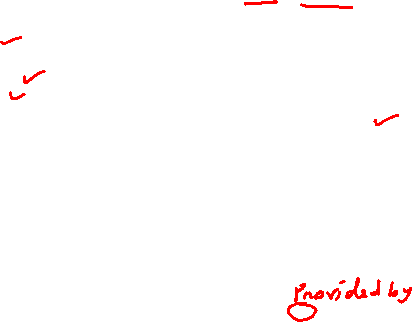 Provided by